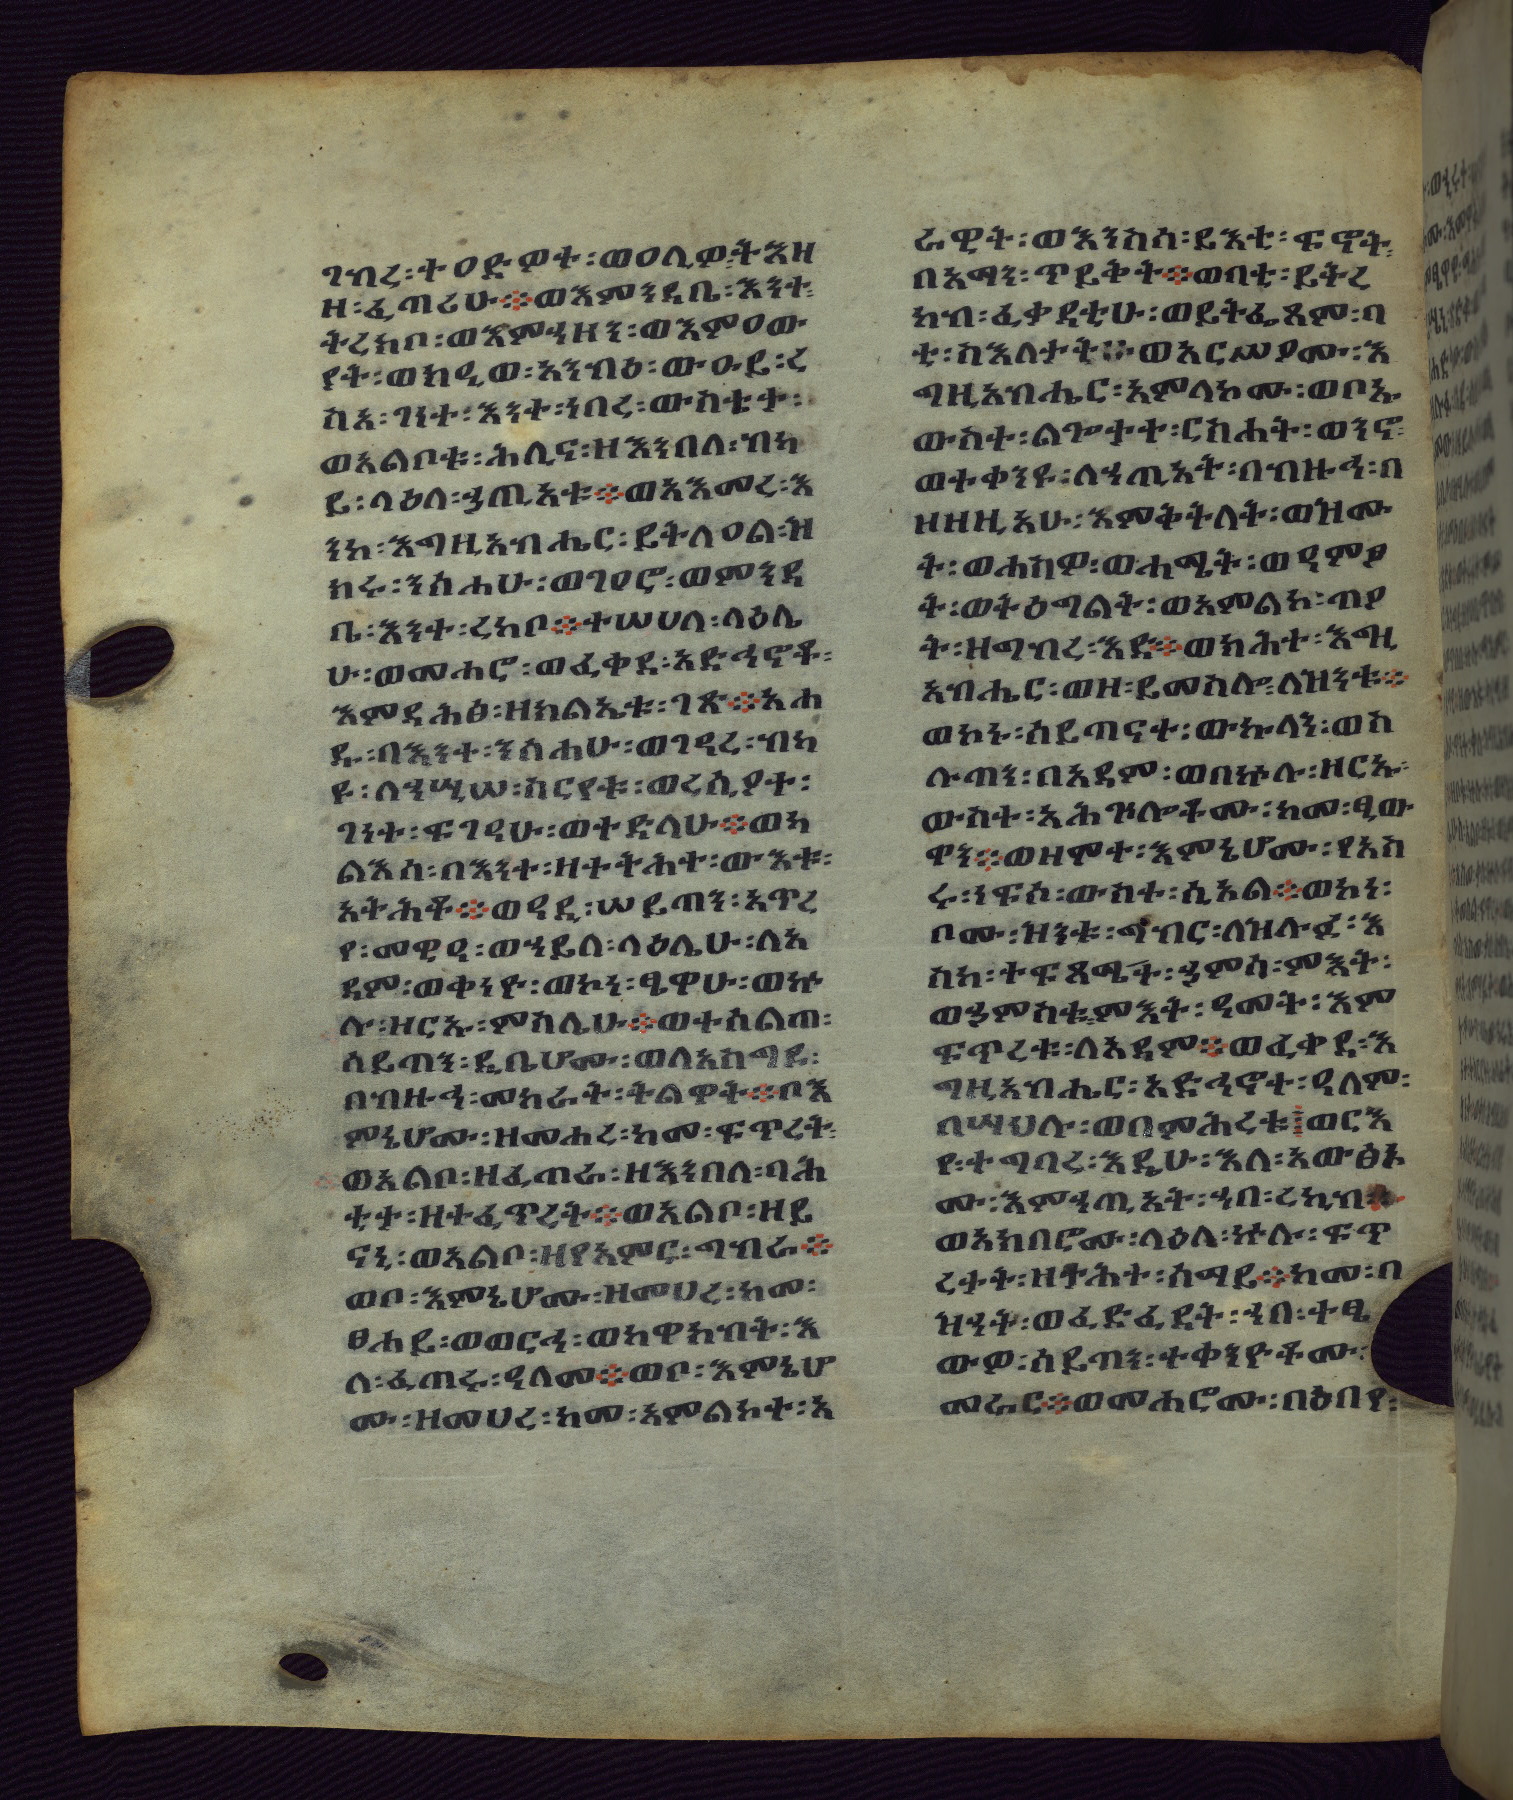 ገብረ፡ተዐድዎተ፡ወዐሊዎ፡ትእዘ
ዘ፡ፈጣሪሁ፨ወእምንዴቤ፡እንተ፡
ትረክቦ፡ወእምኀዘን፡ወእምዐው
የት፡ወክዲወ፡አንብዕ፡ውዑይ፡ረ
ስአ፡ገነተ፡እንተ፡ነበረ፡ውስቴታ፡
ወአልቦቱ፡ሕሊና፡ዘእንበለ፡ብካ
ይ፡ላዕለ፡ኃጢአቱ፨ወአእመረ፡እ
ንከ፡እግዚአብሔር፡ይትለዐል፡ዝ
ክሩ፡ንስሐሁ፡ወገዐሮ፡ወምንዳ
ቤ፡እንተ፡ረከቦ፨ተሠሀለ፡ላዕሌ
ሁ፡ወመሐሮ፡ወፈቀደ፡አድኅኖቶ፡
እምዳሕፅ፡ዘከልአቱ፡ገጽ፨አሐ
ዱ፡በእንተ፡ንስሐሁ፡ወገዓረ፡ብካ
ዩ፡ለኀሢሠ፡ስርየቱ፡ወረሲዖተ፡
ገነተ፡ፍገዓሁ፡ወተድላሁ፨ወካ
ልእስ፡በእንተ፡ዘተትሕተ፡ውእቱ፡
አትሕቶ፨ወዓዲ፡ሠይጣን፡አጥረ
የ፡መዊዓ፡ወኀይለ፡ላዕሌሁ፡ለአ
ዳም፡ወቀነዮ፡ወኮነ፡ፄዋሁ፡ወኵ
ሉ፡ዘርኡ፡ምስሌሁ፨ወተስልጠ፡
ሰይጣን፡ዲቤሆሙ፡ወለአከግዩ፡
በብዙኅ፡መከራት፡ትልዋት፨ቦእ
ምኔሆሙ፡ዘመሐረ፡ከመ፡ፍጥረት፡
ወአልቦ፡ዘፈጠራ፡ዘእንበለ፡ባሕ
ቲታ፡ዘተፈጥረት፨ወአልቦ፡ዘይ
ናኒ፡ወአልቦ፡ዘየአምር፡ግብራ፨
ወቦ፡እምኔሆሙ፡ዘመሀረ፡ከመ፡
ፀሐይ፡ወወርኅ፡ወከዋክብት፡እ
ለ፡ፈጠሩ፡ዓለመ፨ወቦ፡እምኔሆ
ሙ፡ዘመሀረ፡ከመ፡አምልኮተ፡አ
ራዊት፡ወእንስሳ፡ይእቲ፡ፍኖት፡
በአማን፡ጥይቅት፨ወባቲ፡ይትረ
ከብ፡ፈቃዳቲሁ፡ወይትፌጸም፡ባ
ቲ፡ስእለታት፨ወአርሥዖሙ፡እ
ግዚአብሔር፡አምላኮሙ፡ወቦኡ
ውስተ፡ልጐተተ፡ርስሐት፡ወንኖ፡
ወተቀንዩ፡ለኀጢአት፡በብዙኅ፡በ
ዘዘዚአሁ፡እምቅትለት፡ወዝሙ
ት፡ወሐከዎ፡ወሐሜት፡ወዓምፃ
ት፡ወትዕግልት፡ወአምልኮ፡ጣዖ
ት፡ዘግብረ፡እደ፨ወክሕተ፡እግዚ
አብሔር፡ወዘ፡ይመስሎ፡ለዝንቱ፨
ወኮኑ፡ሰይጣናተ፡ውኩላን፡ወስ
ሉጣን፡በአዳም፡ወበኵሉ፡ዘርኡ፡
ውስተ፡አሕጕሎቶሙ፡ከመ፡ፂው
ዋን፨ወዘሞተ፡እምኔሆሙ፡የአስ
ሩ፡ነፍሶ፡ውስተ፡ሲኦል፨ወኮነ፡
ቦሙ፡ዝንቱ፡ግብር፡ለዝሉፉ፡እ
ስከ፡ተፍጸሜት፡ኃምስ፡ምእት፡
ወኃምስቱ፡ምእት፡ዓመት፡እም
ፍጥረቱ፡ለአዳም፨ወፈቀደ፡እ
ግዚአብሔር፡አድኅኖተ፡ዓለም፡
በሣህሉ፡ወበምሕረቱ፡ወርእ
የ፡ተግባረ፡እዴሁ፡እለ፡አውፅኦ
ሙ፡እምኀጢአት፡ኀበ፡ረኪብ፨
ወአክበሮሙ፡ላዕለ፡ኵሉ፡ፍጥ
ረታት፡ዘትሕተ፡ሰማይ፨ከመ፡በ
ዝኅት፡ወፈድፈደት፡ኀበ፡ተፄ
ውዎ፡ሰይጣን፡ተቀንዮቶሙ፡
መሪር፨ወመሐሮሙ፡በዕበየ፡